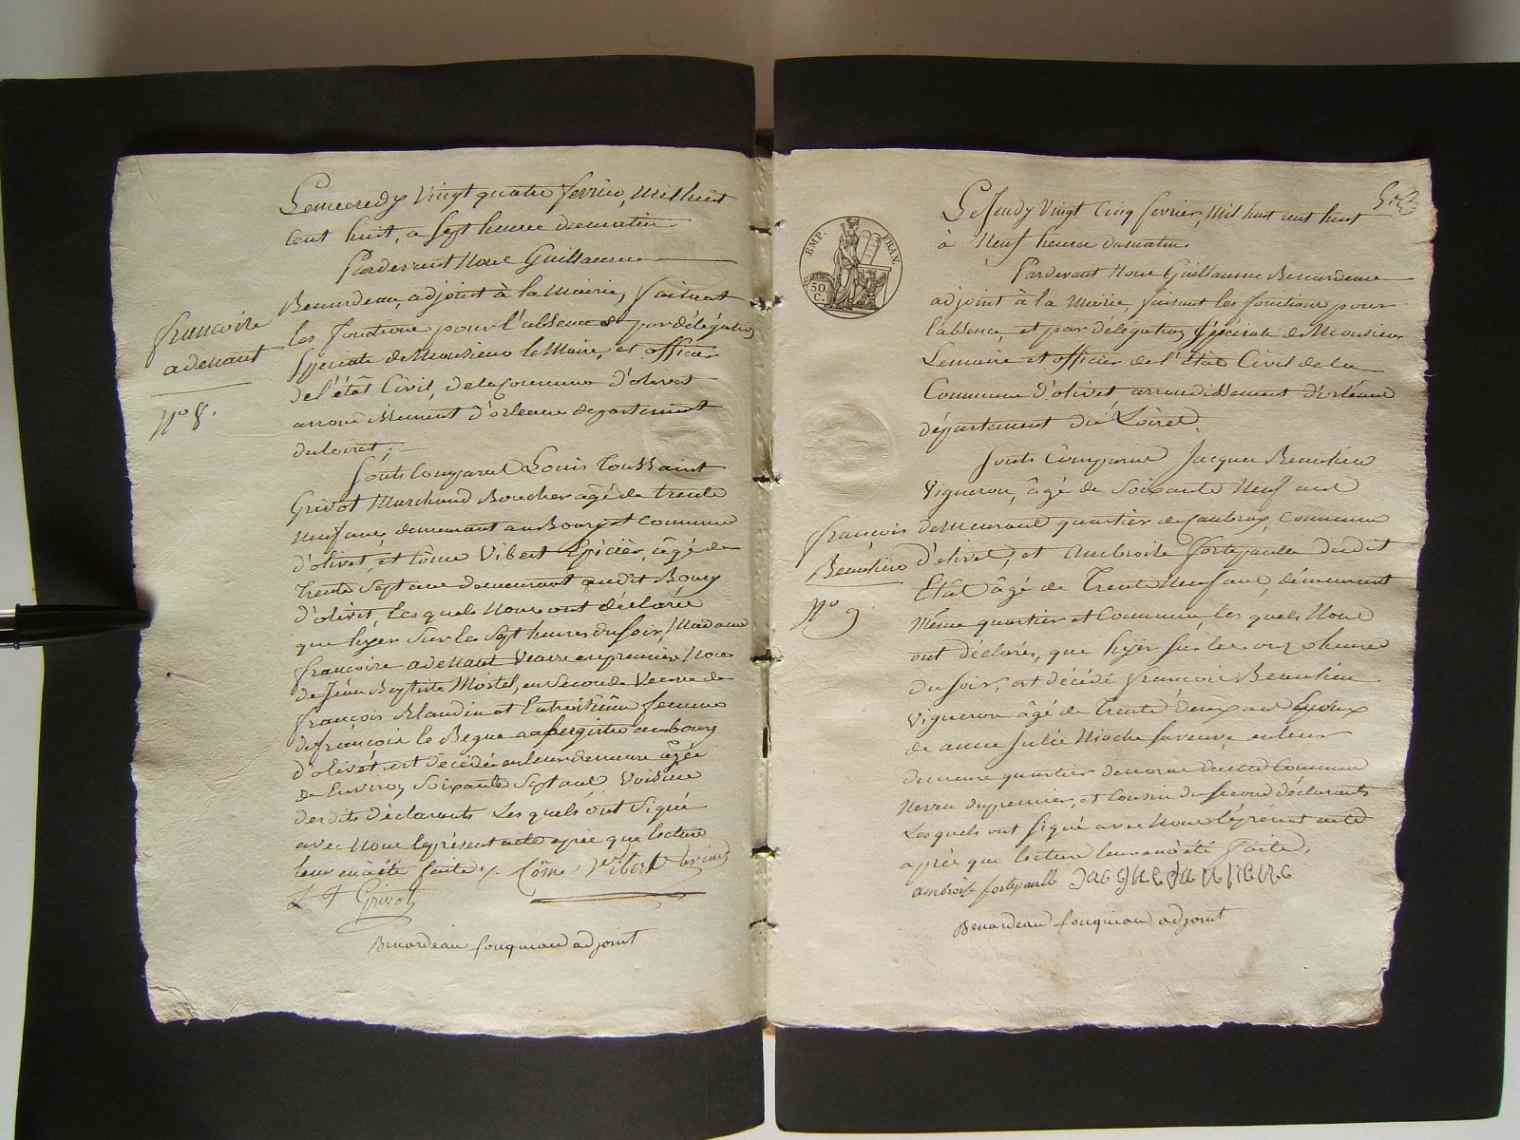 Lemercredy Vingt quatre fevrier, mil huit
cent huit, a sept heure dumatin
Pardevant Nous Guillaume
Benardeau, adjoint à la Mairie, faisant
les fonctions pour l'absence & par délégation
speciale de Monsieur le Maire, et officier
de l'état Civil, de la Commune d'olivet
arrondissement d'orleans departement
du loiret,
sont Comparu Louis Toussaint
Grivot Marchand Boucher âgé de trente
neuf ans, demeurant au Bourg et commune
d'olivet, et Côme Vibert Epicier, âgé de
trente sept ans demeurant audit Bourg
d'olivet, les quels Nous ont déclarée
que hyer sur les sept heures du soir, Madame
françoise adenant Veuve en premier Noce
de Jean Baptiste Mortel, en seconde Veuve de
françois Blandin et Entroisième femme
de françois le Begue au bourg
d'olivet est décédée en leur demeure âgée
De Environ Soixante Sept ans Voisine
des dits déclarants Les quels ont Signé
avec Nous le présent acte après que lecture
leur en a été faite. Côme Vibert
L T Grivot
Benardeau fouqueau adjoint
françoise
adenant
N° 8.
513
Le Jeudy Vingt Cinq fevrier, Mil huit cent huit
à Neuf heure dumatin
Pardevant Nous Guillaume Benardeau
adjoint à la Mairie, faisant les fonctions pour
l'absence, et par délégation spéciale de Monsieur
Lemaire et officier de l'État Civil de la
Commune d'olivet, arrondissement d'orléans
département du Loiret.
sont Comparu Jacques Beaulieu
Vigneron, âgé de soixante Neuf ans
demeurant quartier de Caubray, Commune
d'olivet, et Ambroise fortepaulle dudit
Etat âgé de Trente Neuf ans, demeurant
Même quartier et Commune les quels Nous
ont déclarés, que hyer sur les onze heures
du soir, est décédé françois Beaulieu
Vigneron âgé de Trente deux ans Epoux
de anne Julie Nioche sa veuve en leur
demeure quartier dudit Commune
Neveu du premier, et Cousin du second déclarants
Lesquels ont signé avec Nous le présent acte
après que lecture leur en a été faite.
ambroise fortepaulle Jacque baulieu
Benardeau fouqueau adjoint
françois
Beaulieu
N° 9
EMP. FRAN.
50 C.